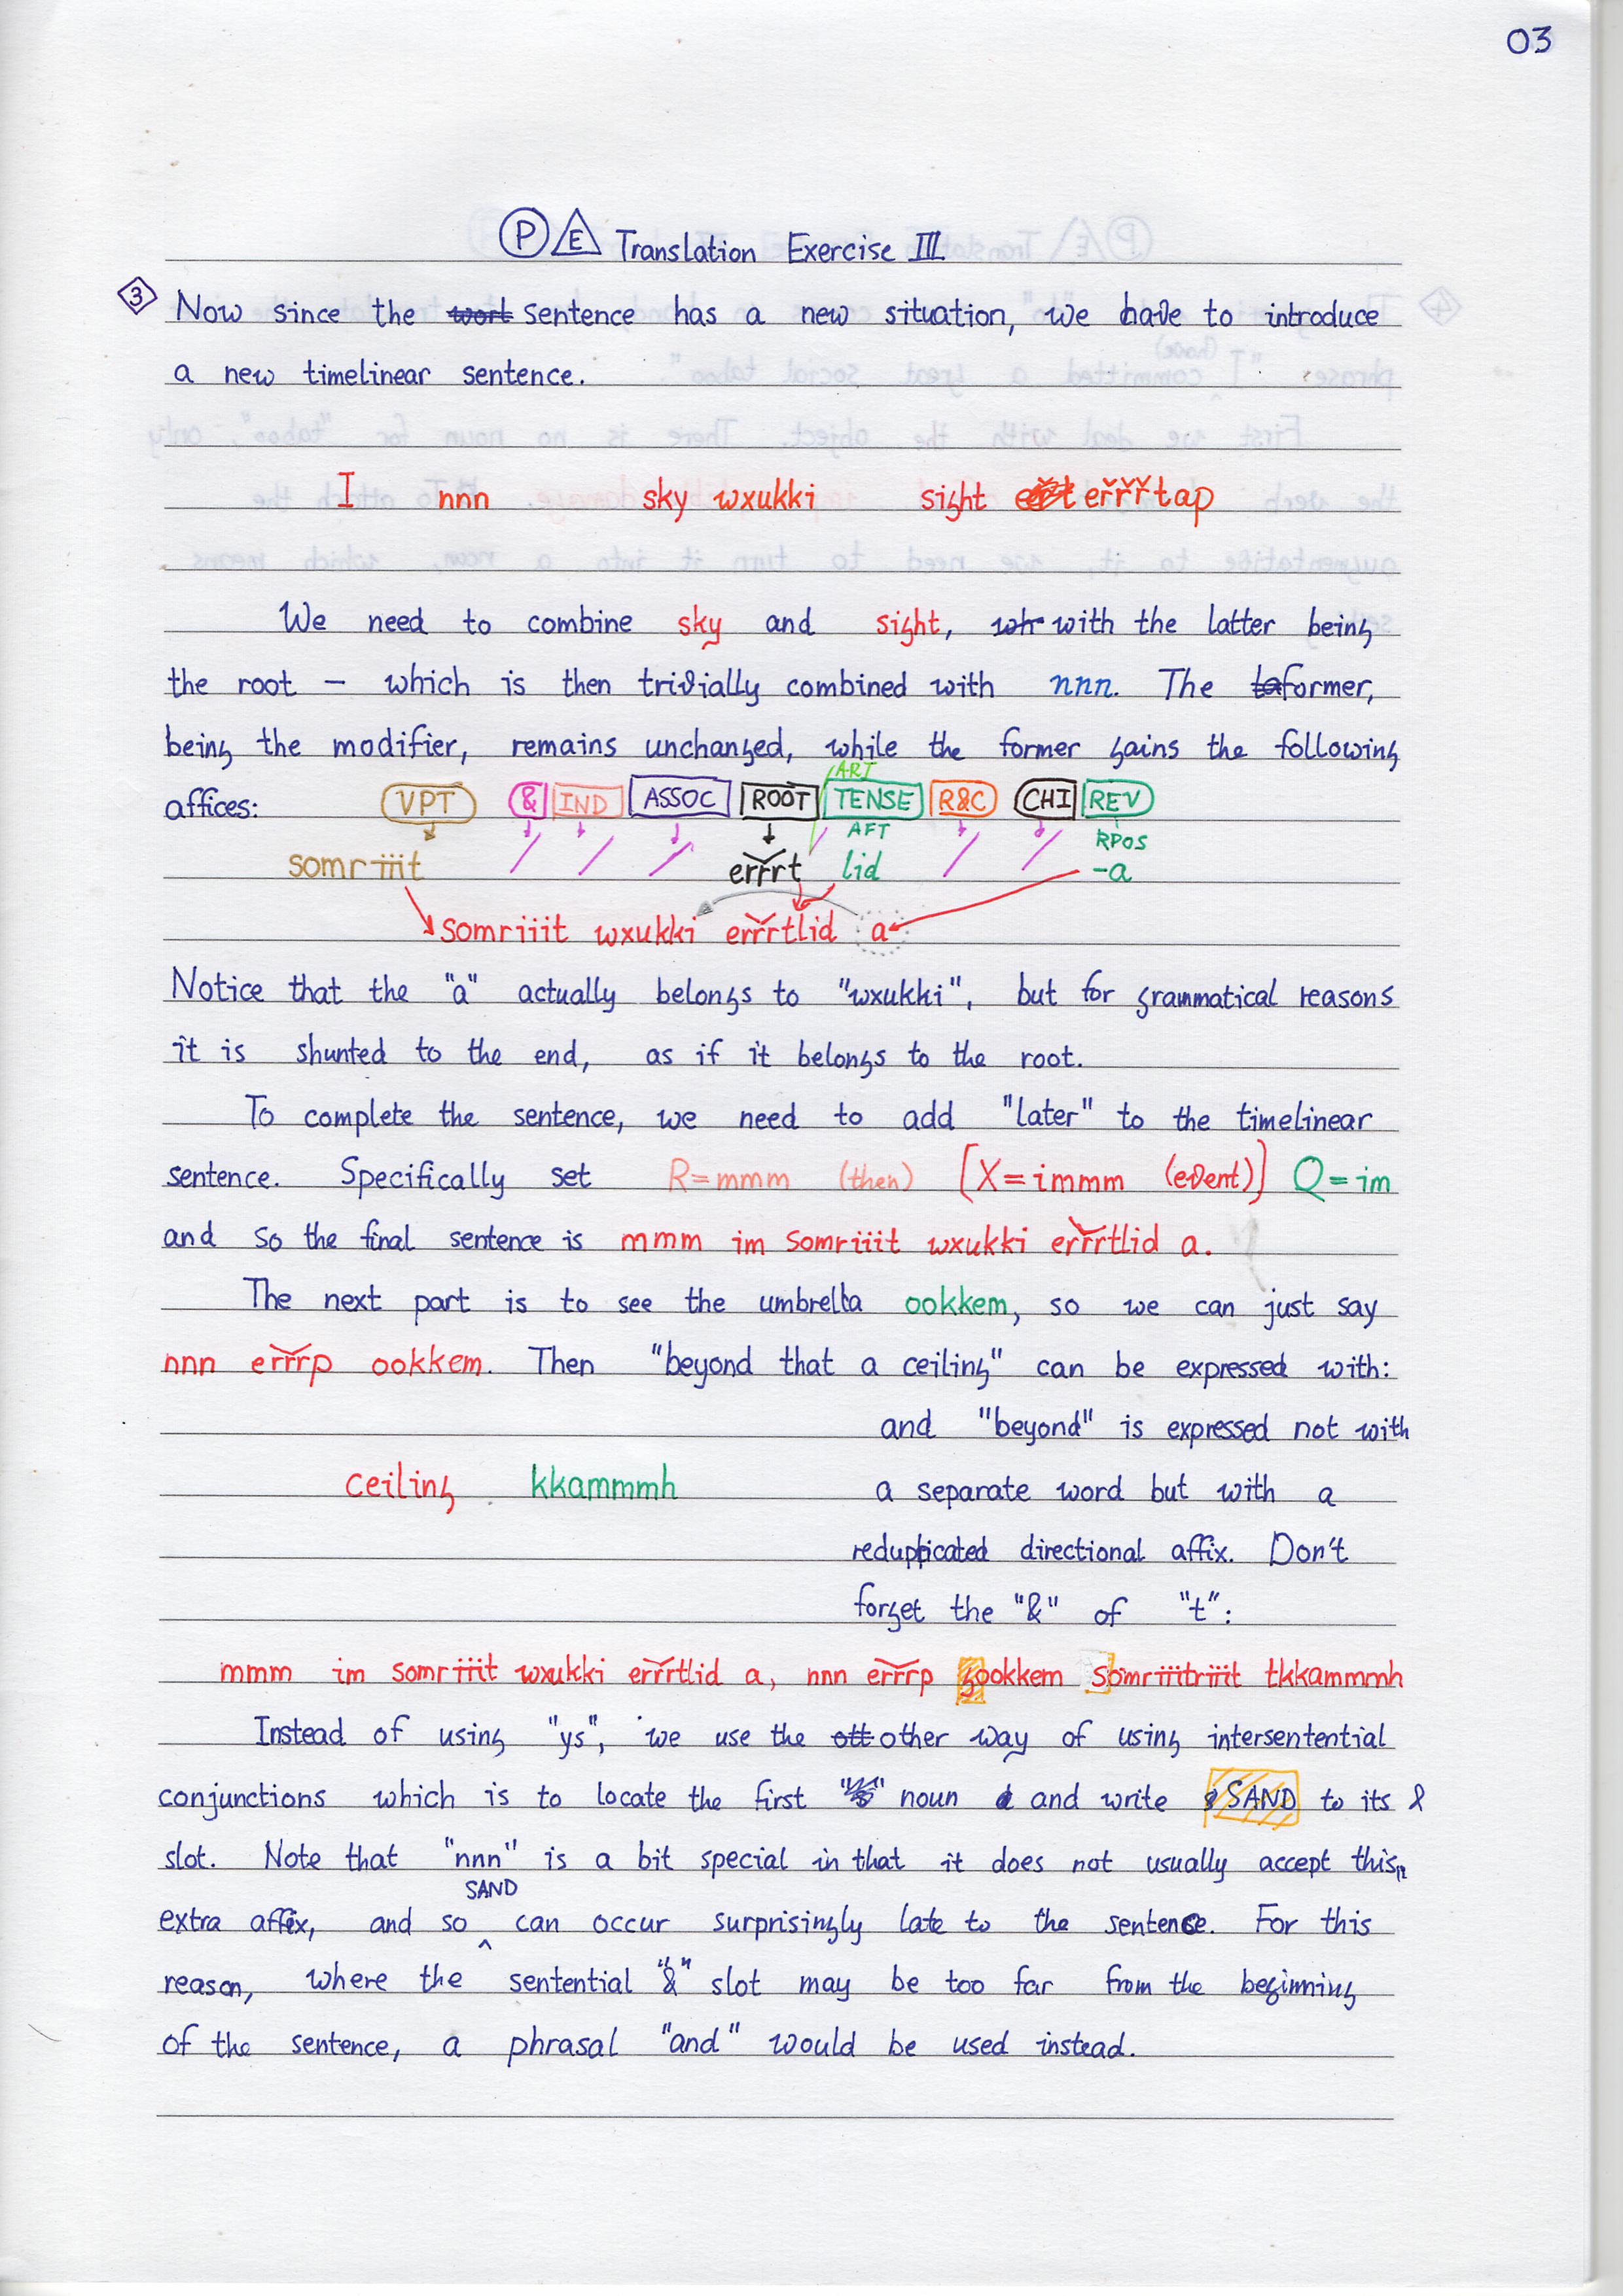 03
P E Translation Exercise III
3 Now since the sentence has a new situation, we have to introduce
a new timelinear sentence.
I nnn sky wxukki sight eřřřtap
We need to combine sky and sight, with the latter being
the root – which is then trivially combined with nnn. The former,
being the modifier, remains unchanged, while the former gains the following
affices: VPT & IND ASSOC ROOT ART TENSE R&C CHI REV
AFT RPOS
somriiit / / / errrt / lid / / -a
somriiit wxukki errrtlid a
Notice that the "a" actually belongs to "wxukki", but for grammatical reasons
it is shunted to the end, as if it belongs to the root.
To complete the sentence, we need to add "later" to the timelinear
sentence. Specifically set R=mmm (then) [X=immm (event)] Q=im
and so the final sentence is mmm im somriiit wxukki errrtlid a.
The next part is to see the umbrella ookkem, so we can just say
nnn errrp ookkem. Then "beyond that a ceiling" can be expressed with:
and "beyond" is expressed not with
ceiling kkammmh a separate word but with a
redupplicated directional affix. Don't
forget the "&" of "t":
mmm im somriiit wxukki errrtlid a, nnn errrp ookkem somriiitriiit tkkammmh
Instead of using "ys", we use the other way of using intersentential
conjunctions which is to locate the first noun and write SAND to its &
slot. Note that "nnn" is a bit special in that it does not usually accept this
extra affix, and so SAND can occur surprisingly late to the sentence. For this
reason, where the sentential "&" slot may be too far from the beginning
of the sentence, a phrasal "and" would be used instead.